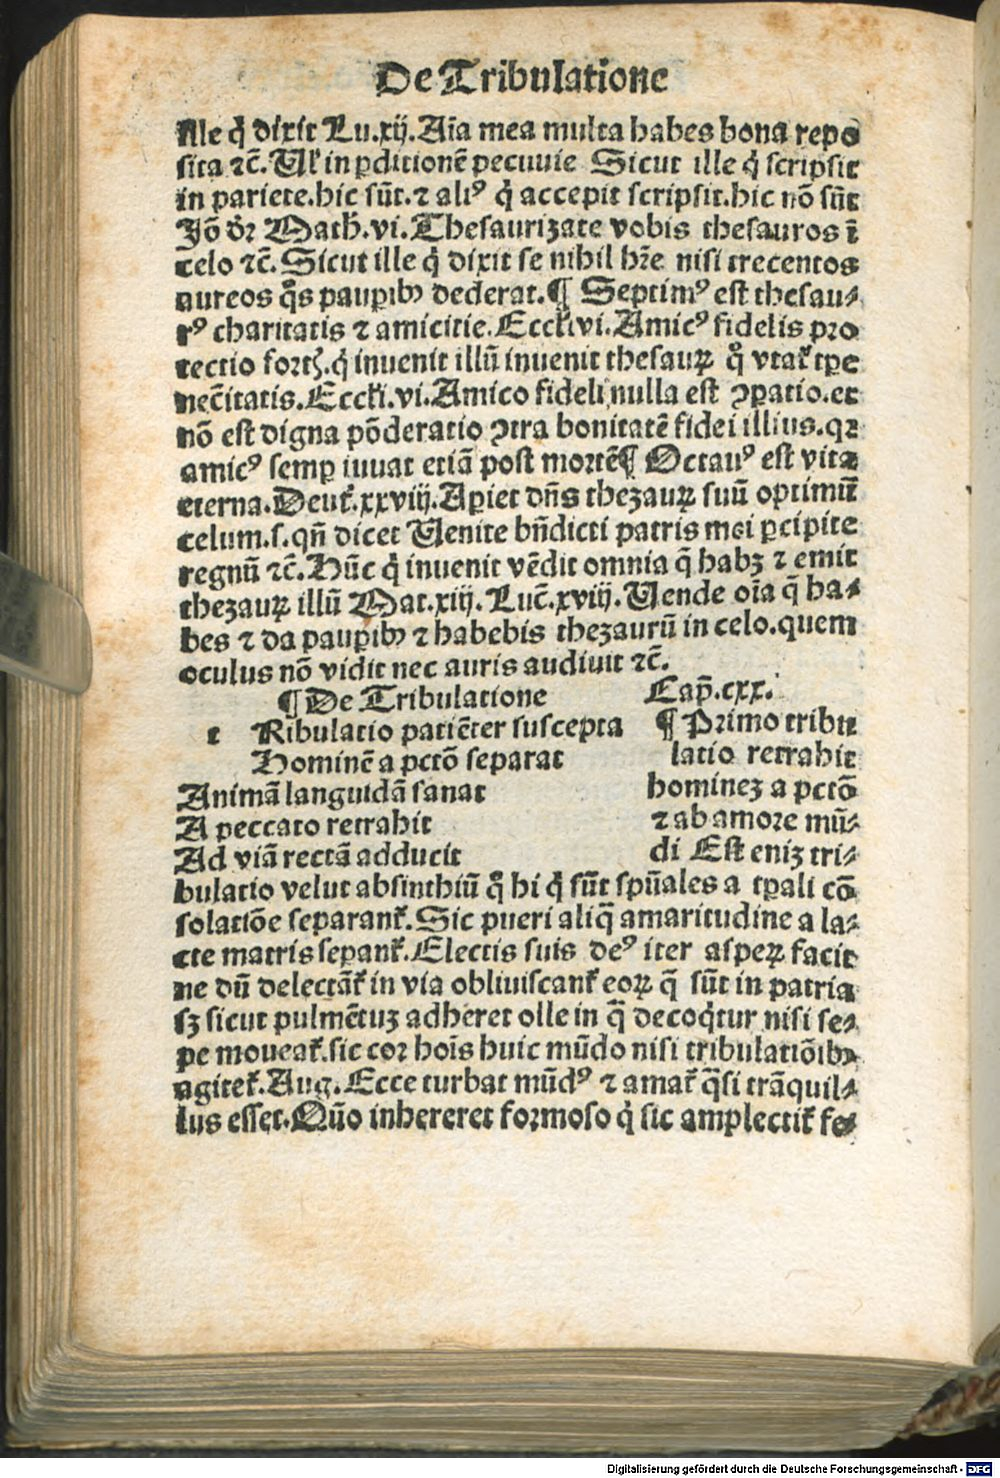 De Tribulatione
ille q̇ dixit Lu.xij. Aīa mea multa habes bona repo
sita ⁊c̄. Uł in ꝑditionē pecuuie Sicut ille q̇ scripsit
in pariete.hic sūt.⁊ aliꝰ q̇ accepit scripsit.hic nō sūt
Jō dꝛ Math̄.vi. Thesaurizate vobis thesauros ī
celo ⁊c̄. Sicut ille q̇ dixit se nihil hr̄e nisi trecentos
aureos q̊s pauꝑibꝰ dederat. ¶ Septimꝰ est thesau⸗
rꝰ charitatis ⁊ amicitie. Eccłi.vi. Amicꝰ fidelis pro
tectio fortꝭ.q̇ inuenit illū inuenit thesauꝝ q̊ vtat᷑ tꝑe
necc̄itatis. Eccłi.vi. Amico fideli nulla est ꝯꝑatio.et
nō est digna pōderatio ꝯtra bonitatē fidei illius.qꝛ
amicꝰ semꝑ iuuat etiā post mortē ¶ Octauꝰ est vita
eterna. Deut᷑.xxviij. Aꝑiet dn̄s thezauꝝ suū optimū
celum.s.qn̄ dicet Uenite bn̄dicti patris mei ꝑcipite
regnū ⁊c̄. Hūc q̇ inuenit vēdit omnia q̄ habꝫ ⁊ emit
thezauꝝ illū Mat.xiij. Luc̄.xviij. Uende oīa q̄ ha⸗
bes ⁊ da pauꝑibꝰ ⁊ habebis thezaurū in celo.quem
oculus nō vidit nec auris audiuit ⁊c̄.
¶ De Tribulatione Cap̄.cxx.
t Ribulatio patiēter suscepta ¶ Primo tribu
Hominē a pctō separat latio retrahit
Animā languidā sanat homineꝫ a pctō
A peccato retrahit ⁊ ab amore mū⸗
Ad viā rectā adducit di Est eniꝫ tri⸗
bulatio velut absinthiū q̊ hi q̇ sūt spūales a tꝑali cō
solatiōe separant᷑. Sic pueri aliq̄ amaritudine a la⸗
cte matris seꝑant᷑. Electis suis deꝰ iter aspeꝝ facit
ne dū delectāt᷑ in via obliuiscant᷑ eoꝝ q̄ sūt in patria
sꝫ sicut pulmētuꝫ adheret olle in q̄ decoq̇tur nisi se⸗
pe moueat᷑.sic cor hoīs huic mūdo nisi tribulatiōibꝰ
agitet᷑. Aug. Ecce turbat mūdꝰ ⁊ amat᷑ q̄si trāquil⸗
lus esset. Quō inhereret formoso q̇ sic amplectit᷑ fe⸗
Digitalisierung gefördert durch die Deutsche Forschungsgemeinschaft - DFG